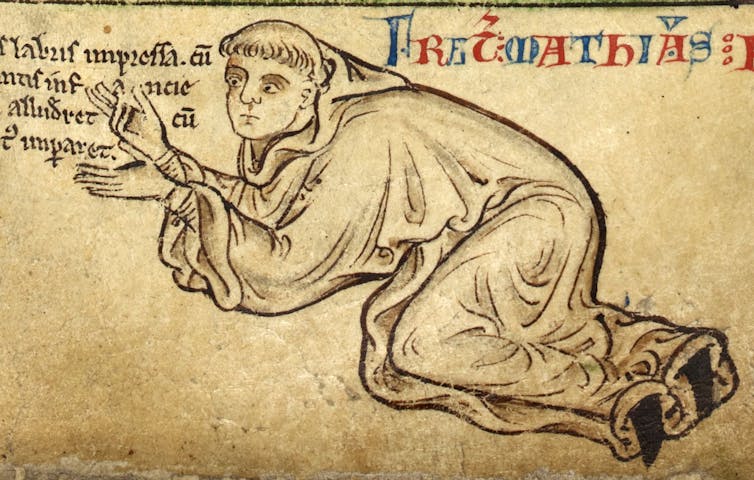 s labris impressa. cū
antis inf a ncie
alludret cū
impararet.
FRET MATHIAS